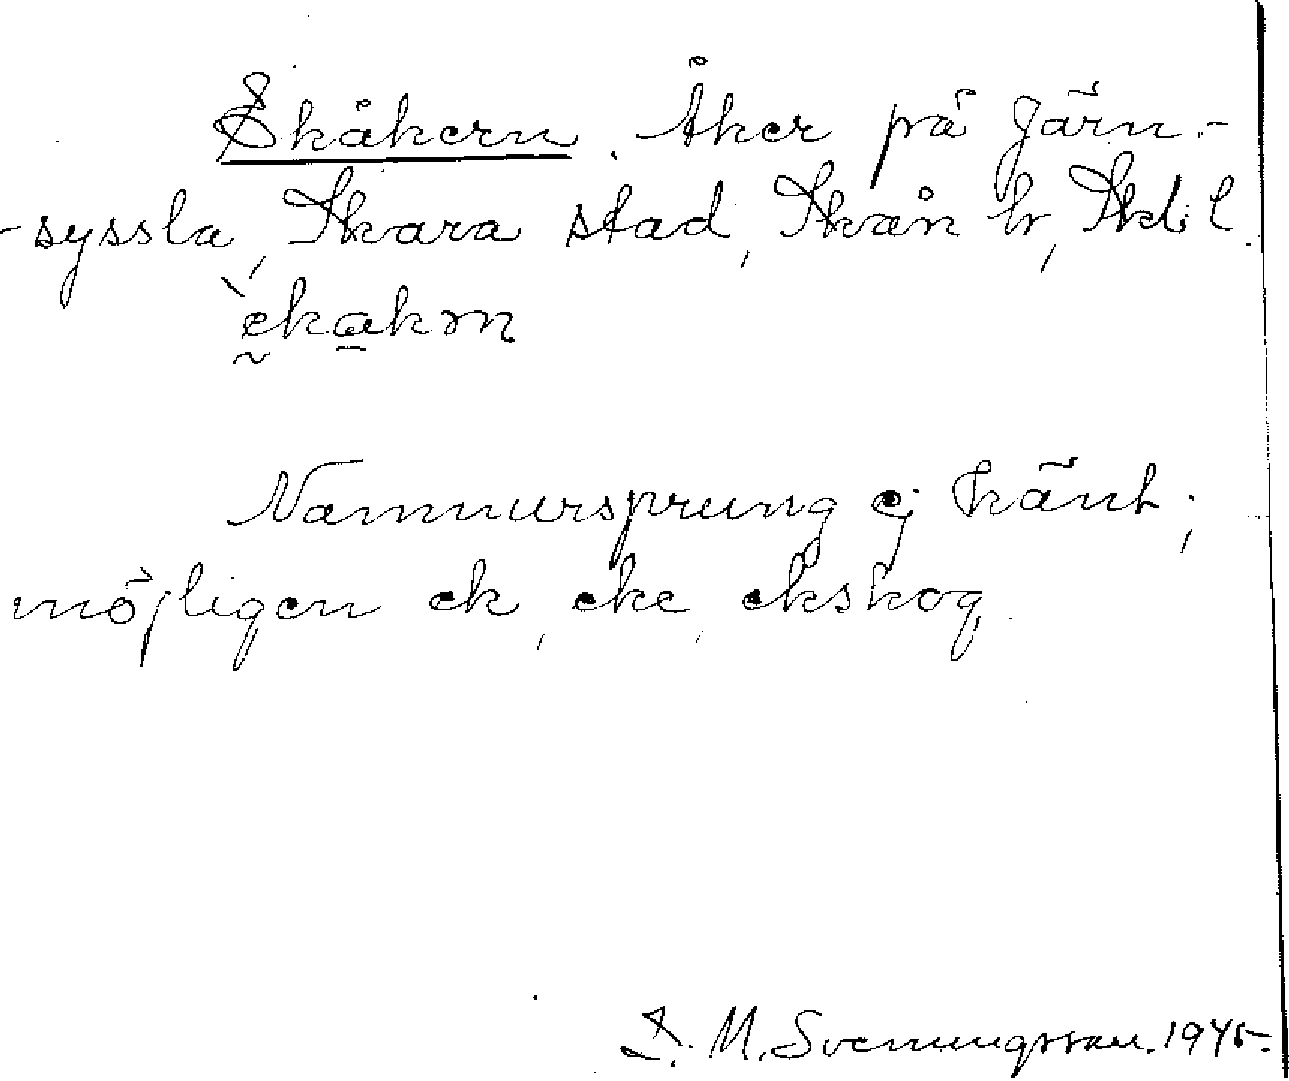 Ekåkern. Åker på Järn-
-syssla, Skara stad, Skån hr, Skbl.
èkakrn
Namnursprung ej känt;
möjligen ek, eke, ekskog.
M. Svenungsson. 1945.